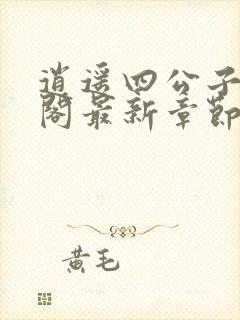 逍遥四公子
阁最新章節
黄毛